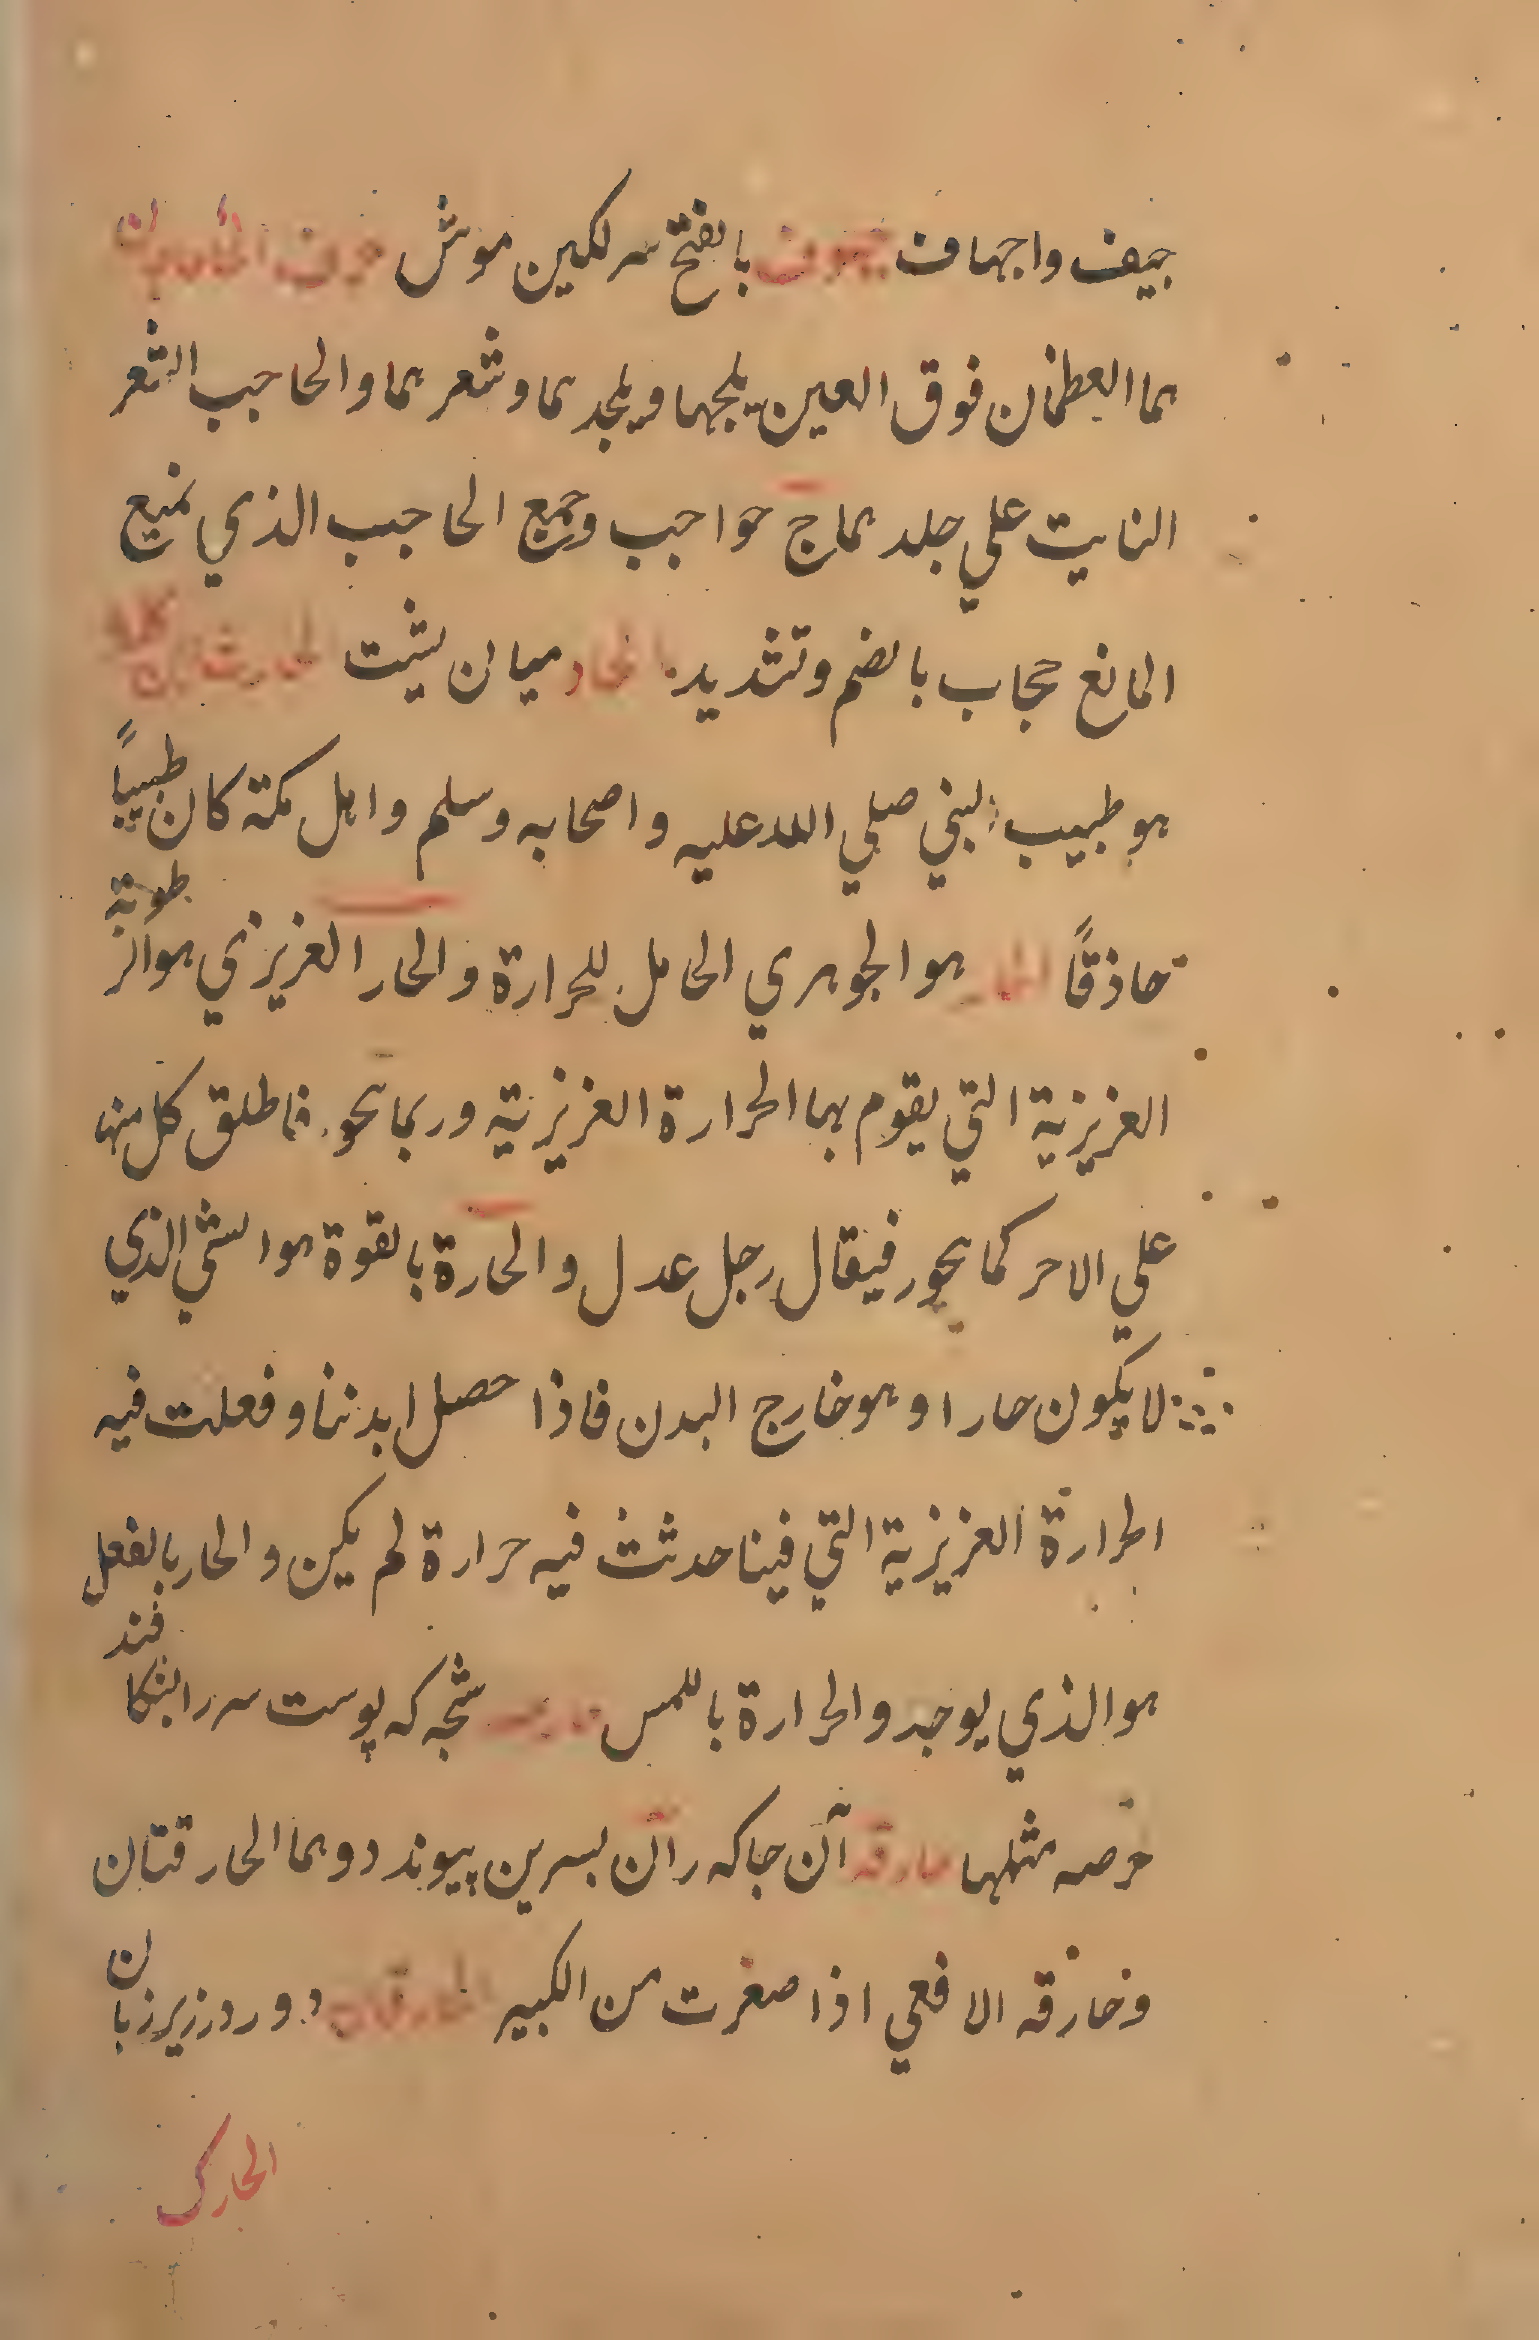 جيف واجهاف بالفتح سرلكين موش حرف الحا
هما العظمان فوق العين بلجهما وبلجد هما وشعر هما والحاجب الشعر
النابت علي جلد هما ج حواجب وجمع الحاجب الذي يمنع
المانع حجاب بالضم وتشديد الحاد ميان پشت الحارث بن كلده
هو طبيب النبي صلي الله عليه واصحابه وسلم واهل مكة كان طبيباً
حاذقاً الحار هو الجوهري الحامل للحرارة والحار الغريزي هو الرطوبة
الغريزية التي يقوم بها الحرارة الغريزية وربما يحوز فاطلق كل منها
علي الاخر كما يحوز فيقال رجل عدل والحارة بالقوة هو الشي الذي
لا يكون حارا وهو خارج البدن فاذا حصل ابدننا وفعلت فيه
الحرارة الغريزية التي فينا حدثث فيه حرارة لم يكن والحار بالفعل
هو الذي يوجد والحرارة باللمس شجه كه پوست سر را بشكافند
خرصه مثلها حارقه آن جا كه ران بسرين پيوند دو هما الحارقتان
وخارقه الافعي اذا صغرت من الكبير الحارقان دو رود زير زبان
الحارك